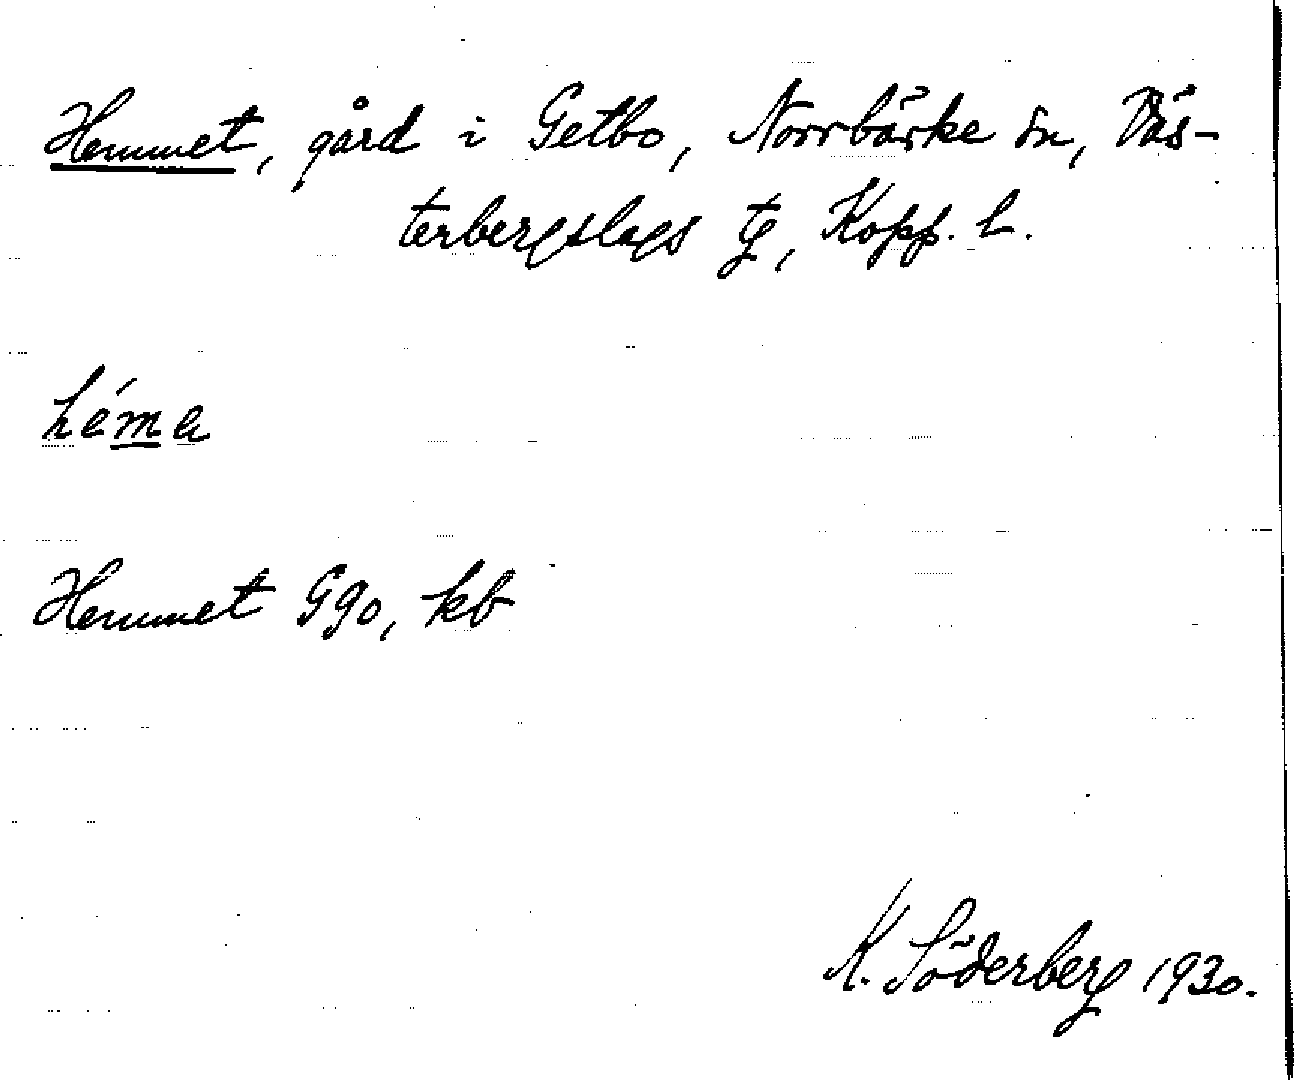 Hemmet, gård i Getbo, Norrbärke sn, Väs-
terbergslags tg, Kopp. l.
héma
Hemmet Ggo, kb
K. Söderberg 1930.